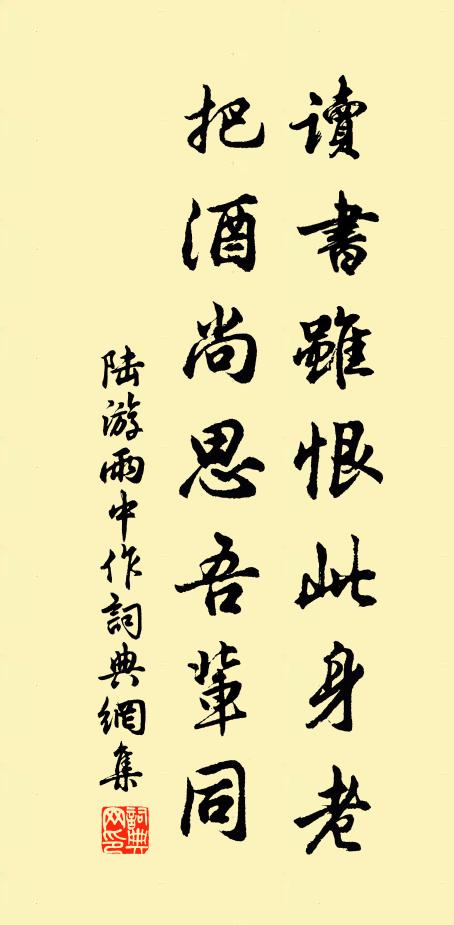 讀書雖恨此身老
把酒尚思吾輩同
陸游雨中作詞典網集
詞典网印